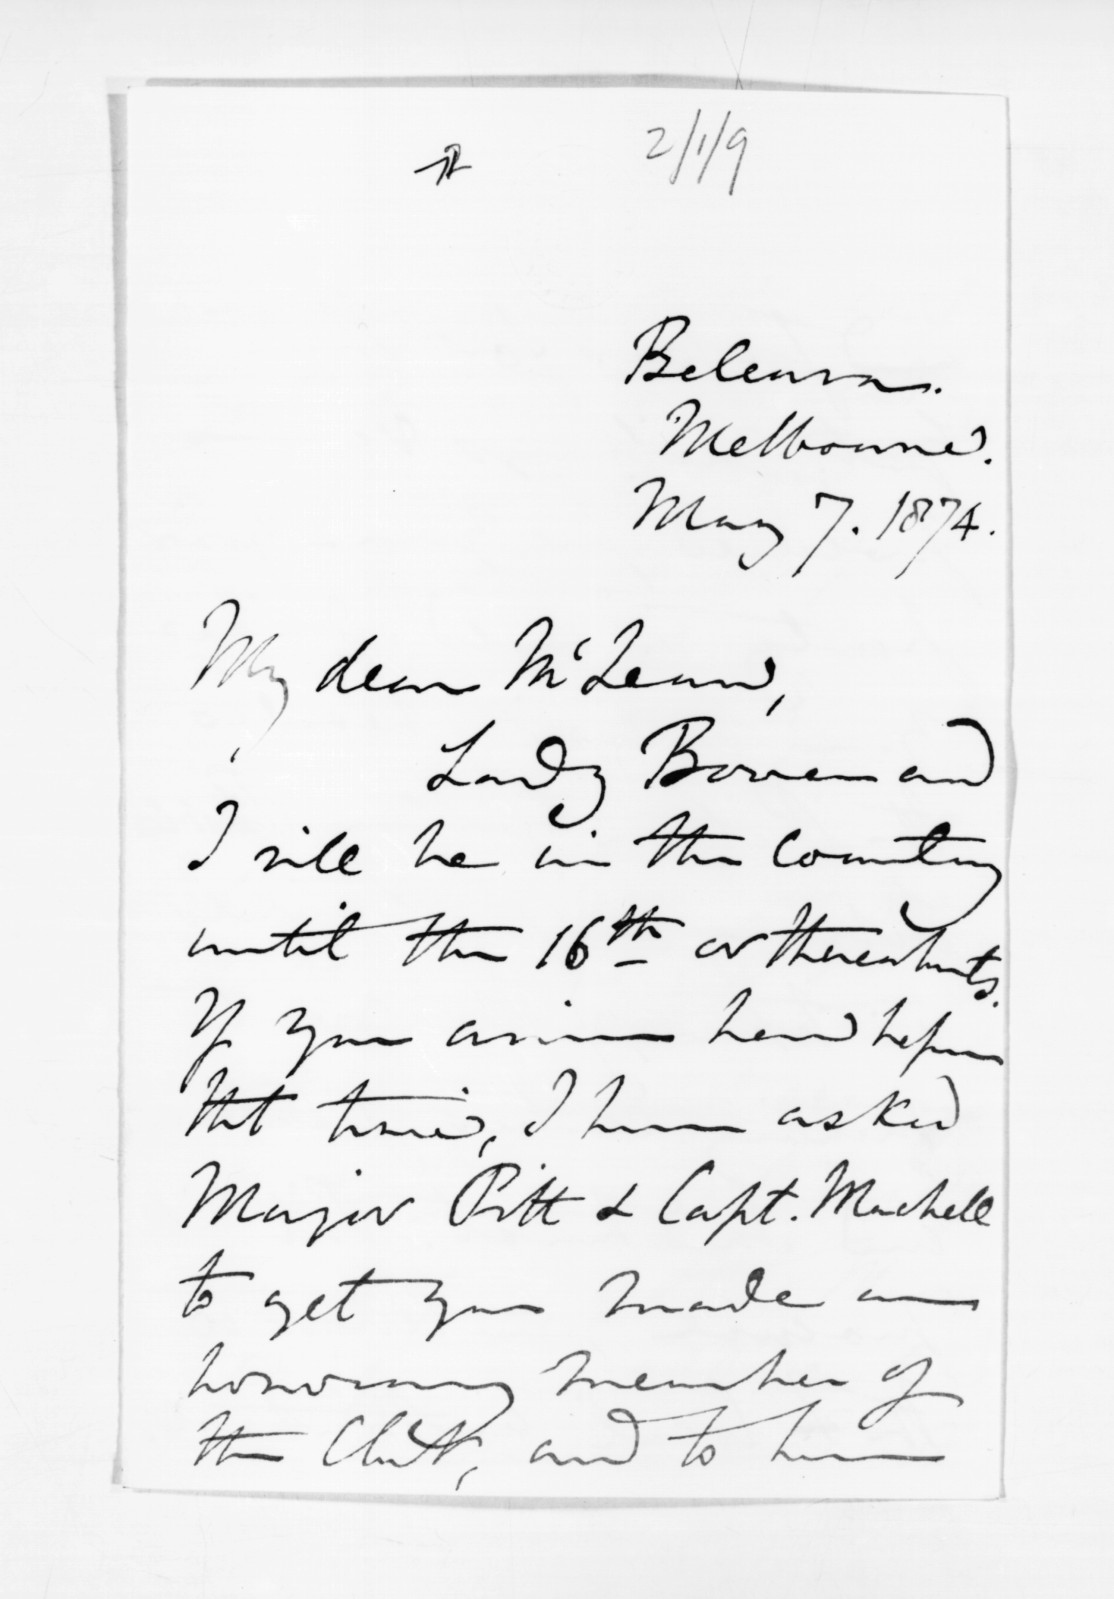 2/1/9
Beleura.
Melbourne.
May 7. 1874.
My dear McLean,
Lady Bowen and
I will be in the country
until the 16th or thereabouts.
If you arrive here before
that time, I have asked
Major Pitt & Capt. Machell
to get you made an
honorary member of
the Club, and to have